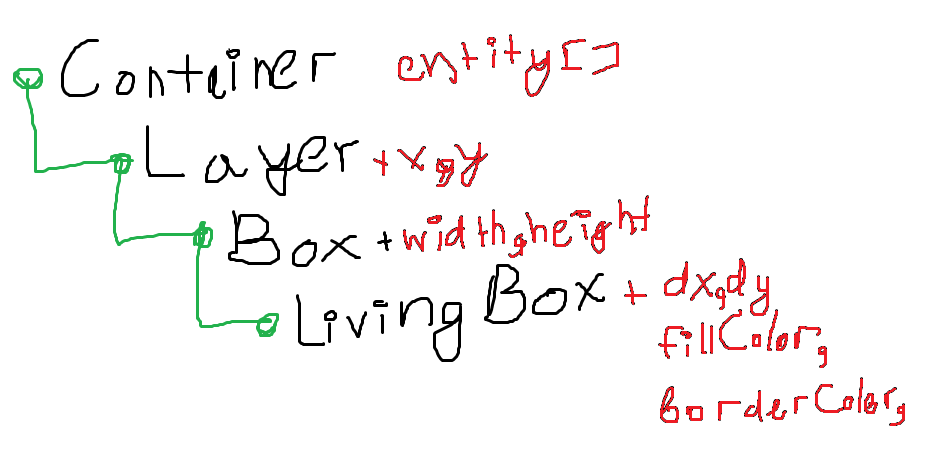 Container entity[]
Layer + x,y
Box + width,height
Living Box + dx,dy
fillColor,
borderColor,